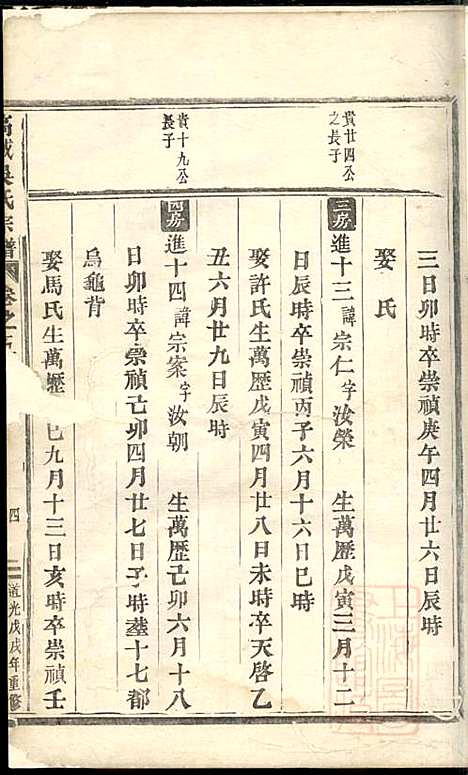 三日卯時卒崇禎庚午四月廿六日辰時
娶 氏
貴廿四公
之長子
三房進十三諱宗仁字汝榮 生萬歷戊寅三月十二
日辰時卒崇禎丙子六月十六日巳時
娶許氏生萬歷戊寅四月廿八日未時卒天啓乙
丑六月廿九日辰時
貴十九公
長子
四房進十四諱宗案字汝朝 生萬歷己卯六月十八
日卯時卒崇禎己卯四月廿七日子時塟十七都
烏龜背
娶馬氏生萬歷 巳九月十三日亥時卒崇禎壬
吳氏宗譜 卷之 四 道光戊戌年重修